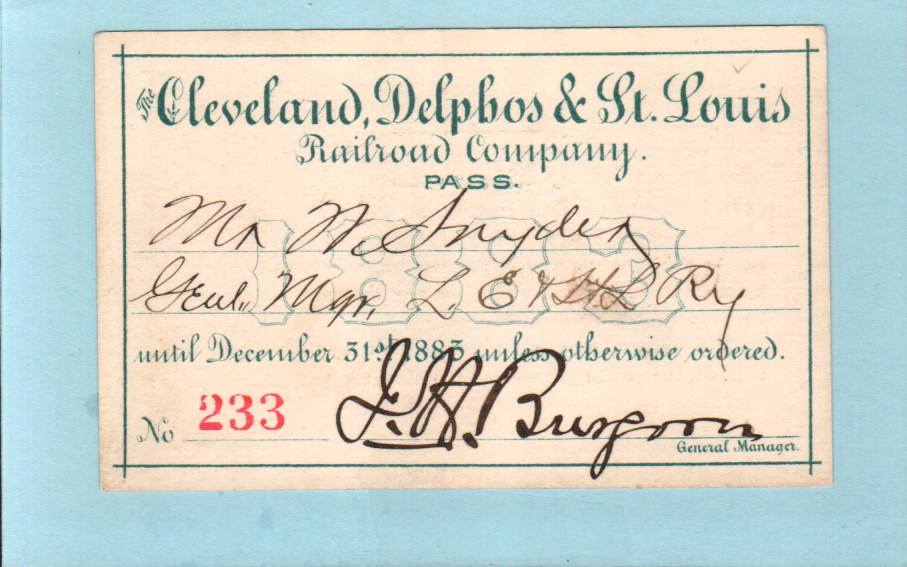 The Cleveland, Delphos & St. Louis
Railroad Company.
PASS.
1883
Mr W. Snyder
Genl. Mgr. L. E & St L Ry
until December 31st 1883 unless otherwise ordered.
No 233
J. H. Burgoon
General Manager.